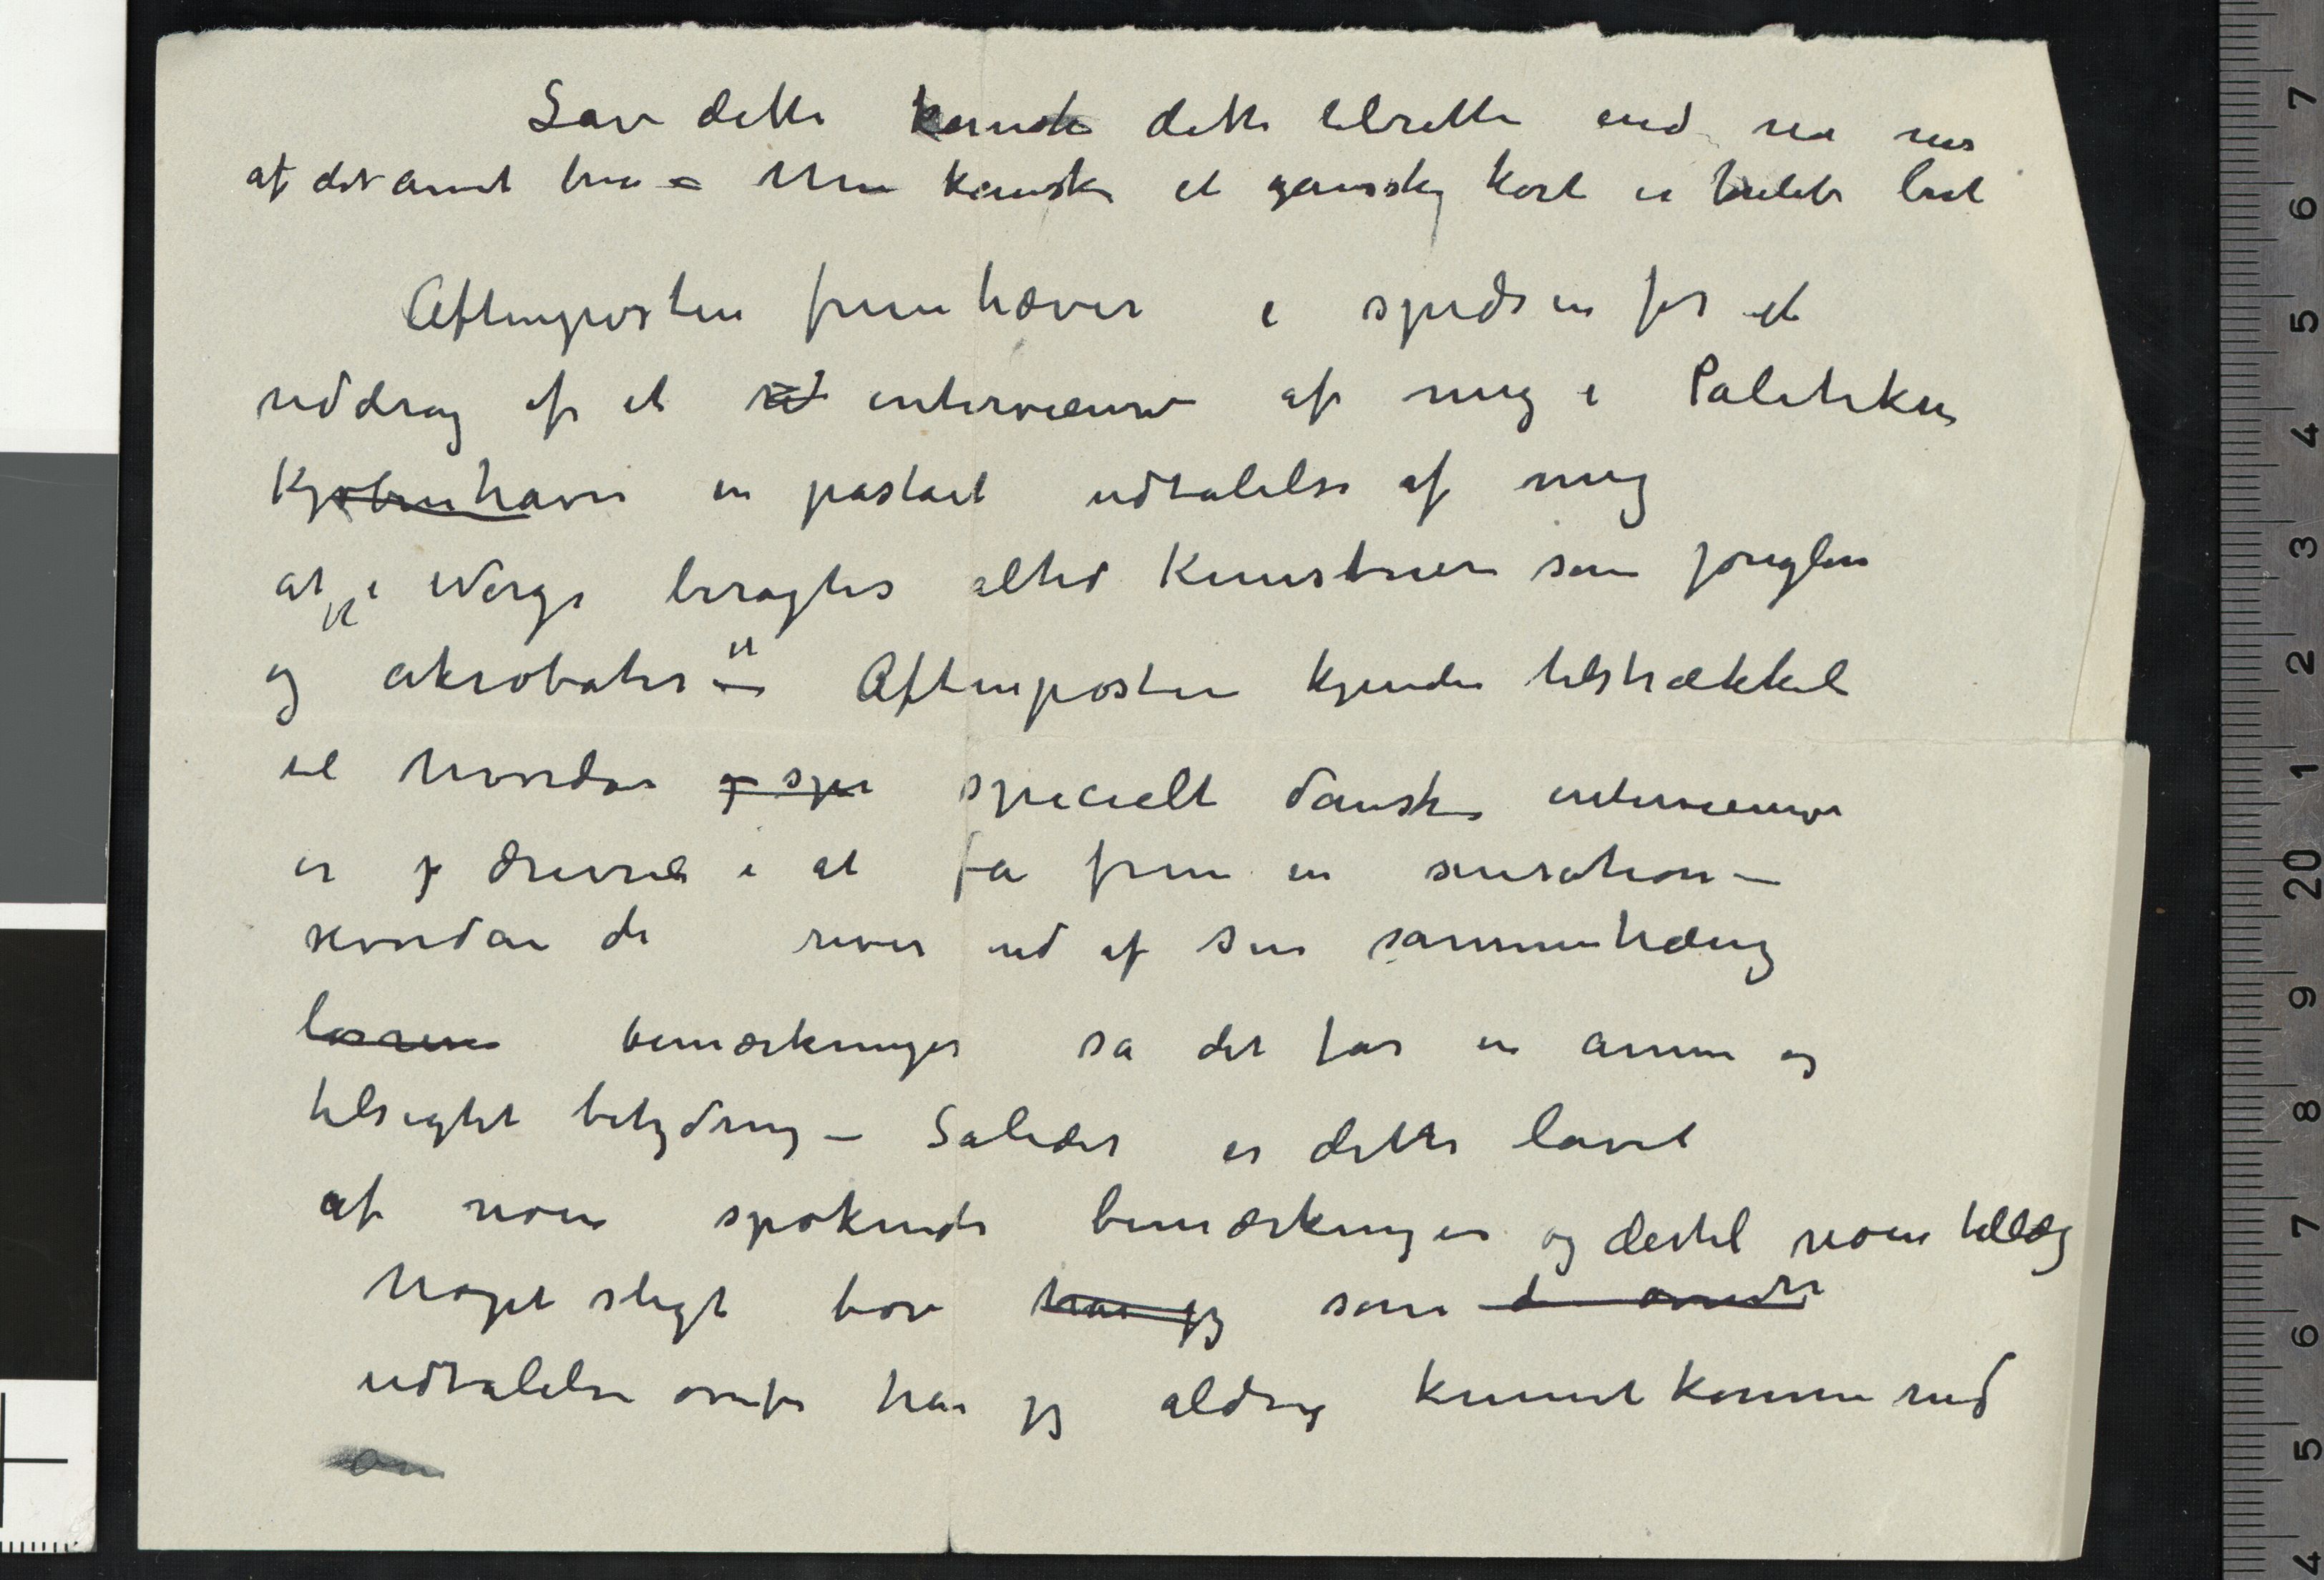 Lav dette kanske dette tilrette
af det annet brev – Men kanske et ganske kort er
Aftenposten fremhæver i spidsen for et
uddrag af et interviewe af mig i Politiken
Kjøbenhavn en påstået udtalelse af mig
at "i Norge beragtes altid Kunstnere som jonglere
og akrobater" – Aftenposten kjender tilstrækkel
til hvordan og spe specielt danske interviewer
er drevne i at få frem en sensation –
hvordan de river ud af sin sammenhæng
bemærkninger så det får en annen og
tilsigtet betydning – Således er dette lavet
af noen spøkende bemærkninger og dertil noen tillæg
Noget sligt bør har jeg som
udtalelse ovenfor har jeg aldrig kunnet komme med
om